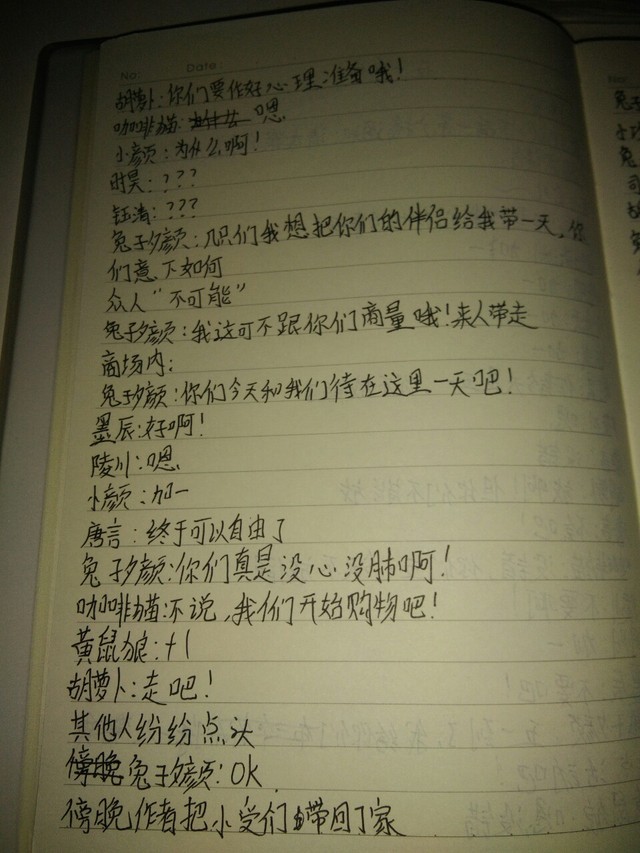 No: Date:
胡萝卜:你们要作好心理准备哦!
咖啡猫: 嗯
小颜:为什么啊!
时昊:???
钰浩:???
兔子夕颜:几只们我想把你们的伴侣给我带一天,你
们意下如何
众人"不可能"
兔子夕颜:我这可不跟你们商量哦!来人带走
商场内:
兔子夕颜:你们今天和我们待在这里一天吧!
墨辰:好啊!
陵川:嗯
小颜:加一
唐言:终于可以自由了
兔子夕颜:你们真是没心没肺啊!
咖啡猫:不说,我们开始购物吧!
黄鼠狼:+1
胡萝卜:走吧!
其他人纷纷点头
傍晚 兔子夕颜:OK
傍晚作者把小受们带回了家